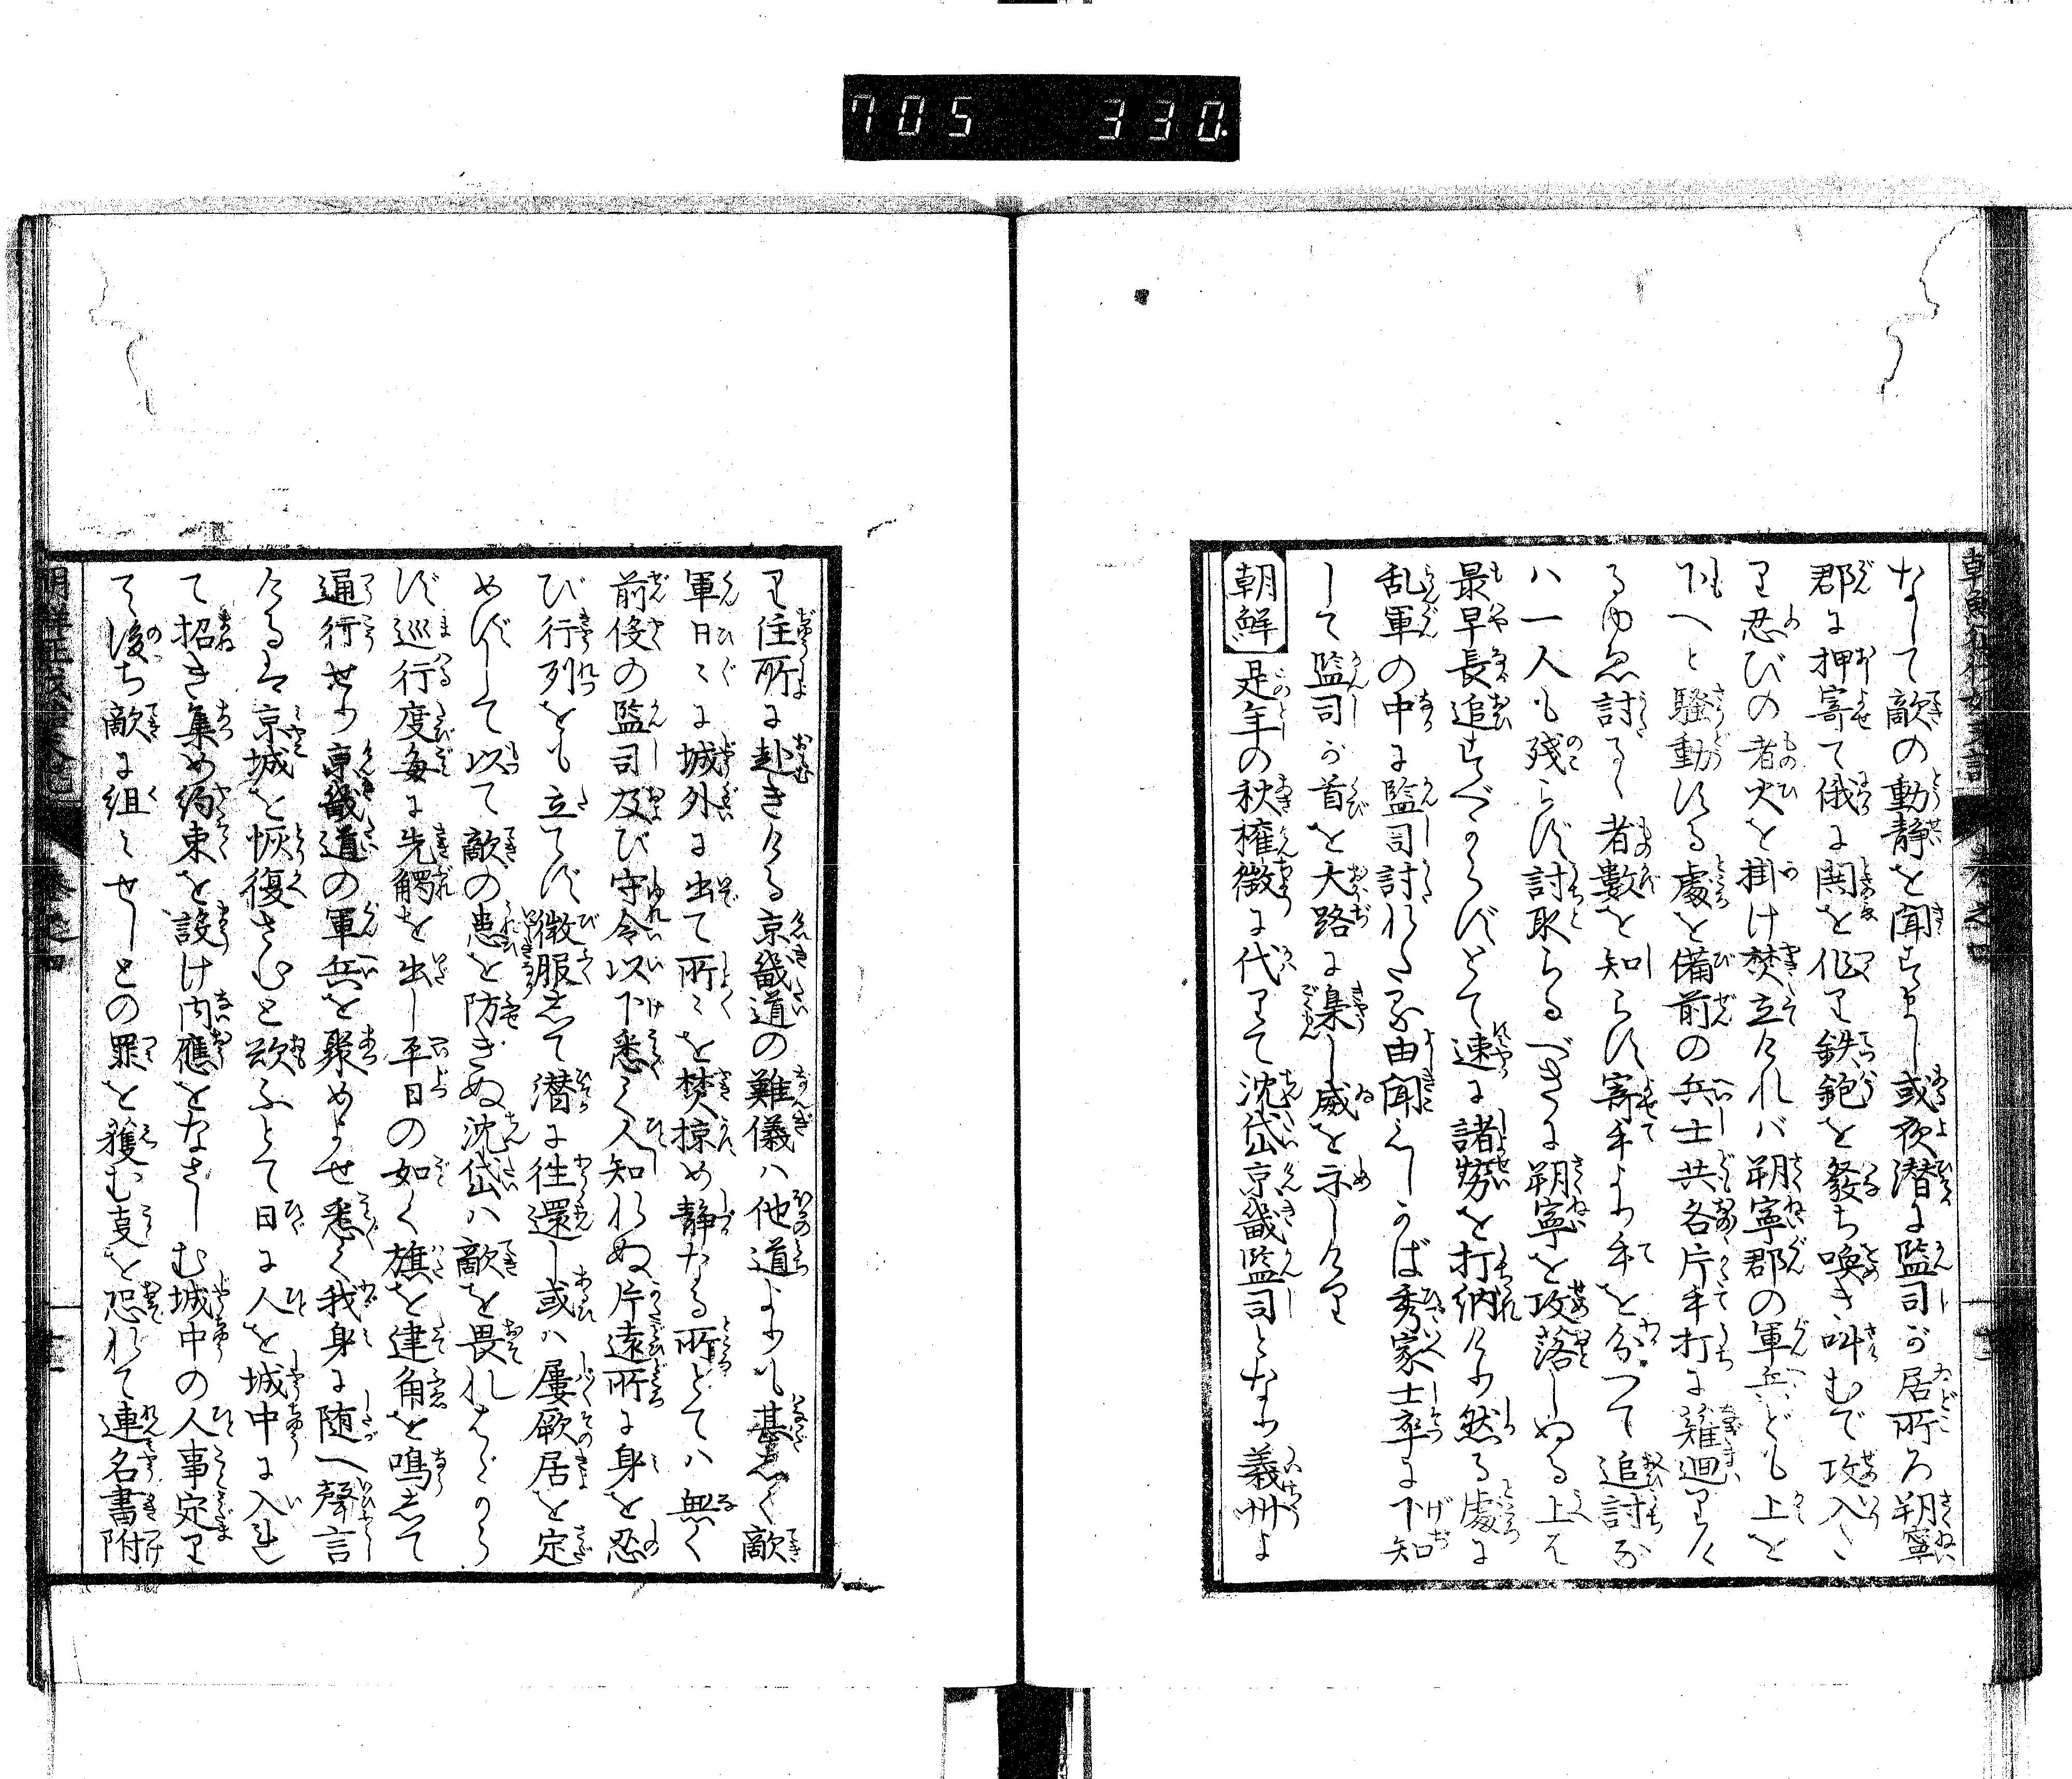 705 330
なして敵の動静を聞すまし或夜潜に監司が居所ろ朔寧
郡に押寄て俄に鬨を作り鉄鉋を發ち喚き叫むで攻入こ
り忍びの者火を掛け焚立けれバ朔寧郡の軍兵ども上を
下へと騒動する處を備前の兵士共各片手打に薙廻りけ
るゆゑ討るゝ者數を知らず寄手より手を分つて追討な
ハ一人も残らず討取らるべきに朔寧を攻落しぬる上は
最早長追すべからずとて速に諸勢を打納けり然る處に
乱軍の中に監司討れたる由聞えしかば秀家士卒に下知
して監司が首を大路に梟し威を示しけり
朝鮮 是年の秋權徴に代りて沈岱京畿監司となり義州よ
り住所に赴きける京畿道の難儀ハ他道よりも甚しく敵
軍日々に城外に出て所々を焚掠め静なる所とてハ無く
前後の監司及び守令以下悉く人知れぬ片遠所に身を忍
び行列をも立てず微服して潜に徃還し或ハ屡厥居を定
めずして以て敵の患を防ぎぬ沈岱ハ敵を畏れしからず
巡行度毎に先觸を出し平日の如く旗を建角を鳴して
通行せり京畿道の軍兵を聚めよせ悉く我身に随へ聲言
けるは京城を恢復さむと欲ふとて日に人を城中に入れ
て招き集め約束を設け内應をなさしむ城中の人事定り
て後ち敵に組せしとの罪を獲む支を恐れて連名書附